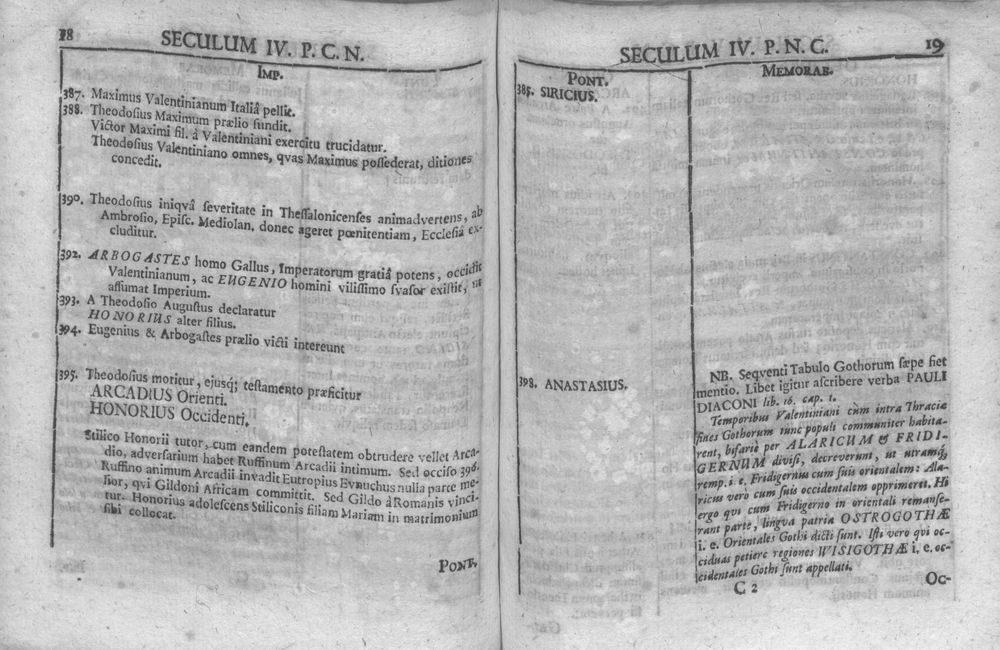 18
SECULUM IV. P. C. N.
Imp.
387. Maximus Valentinianum Italiâ pellit.
388. Theodosius Maximum prælio fundit.
Victor Maximi fil. â Valentiniani exercitu trucidatur.
Theodosius Valentiniano omnes, qvas Maximus possederat, ditiones
concedit.
390. Theodosius iniqvâ severitate in Thessalonicenses animadvertens, ab
Ambrosio, Episc. Mediolan, donec ageret pœnitentiam, Ecclesiâ ex-
cluditur.
392. ARBOGASTES homo Gallus, Imperatorum gratiâ potens, occidit
Valentinianum, ac EUGENIO homini vilissimo svasor existit, ut
assumat Imperium.
393. A Theodosio Augustus declaratur
HONORIUS alter filius.
394. Eugenius & Arbogastes prælio victi intereunt
395. Theodosius moritur, ejusq; testamento præficitur
ARCADIUS Orienti.
HONORIUS Occidenti.
Stilico Honorii tutor, cum eandem potestatem obtrudere vellet Arca-
dio, adversarium habet Ruffinum Arcadii intimum. Sed occiso 396.
Ruffino animum Arcadii invadit Eutropius Evnuchus nulla parte me-
lior, qvi Gildoni Africam committit. Sed Gildo â Romanis vinci-
tur. Honorius adolescens Stiliconis filiam Mariam in matrimonium
sibi collocat.
PONT.
SECULUM IV. P. N. C.
19
Pont.
385. SIRICIUS.
398. ANASTASIUS.
Memorab.
NB. Seqventi Tabulo Gothorum sæpe fiet
mentio. Libet igitur ascribere verba PAULI
DIACONI lib. 16. cap. 1.
Temporibus Valentiniani cùm intra Thraciæ
fines Gothorum tunc populi communiter habita-
rent, bifariè per ALARICUM & FRIDI-
GERNUM divisi, decreverunt, ut utramq;
remp. i. e. Fridigernus cum suis orientalem: Ala-
ricus verò cum suis occidentalem opprimeret. Hi
ergo qvi cum Fridigerno in orientali remanse-
rant parte, lingva patria OSTROGOTHÆ
i. e. Orientales Gothi dicti sunt. Isti vero qvi oc-
ciduas petiere regiones WISIGOTHÆ i. e. oc-
cidentales Gothi sunt appellati.
C 2
Oc-